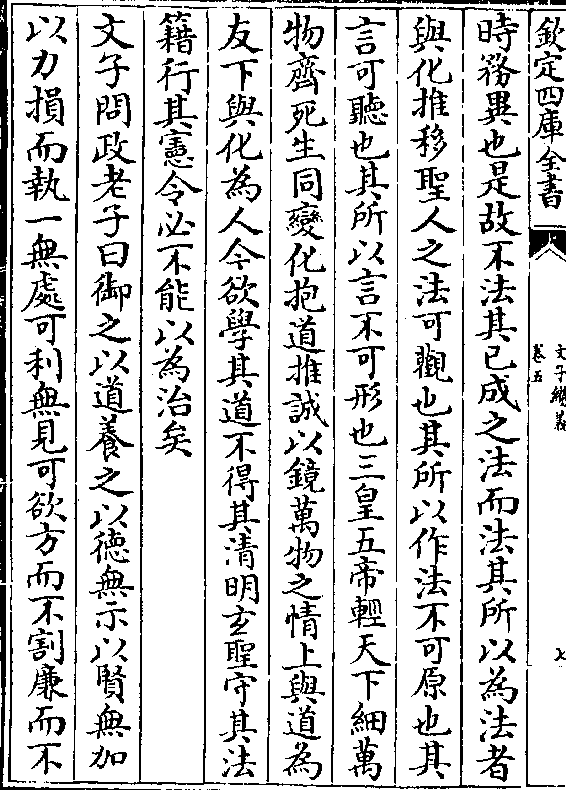 欽定四庫全書
文子纘義
卷五
七
時務異也是故不法其已成之法而法其所以為法者
與化推移聖人之法可觀也其所以作法不可原也其
言可聽也其所以言不可形也三皇五帝輕天下細萬
物齊死生同變化抱道推誠以鏡萬物之情上與道為
友下與化為人今欲學其道不得其清明玄聖守其法
籍行其憲令必不能以為治矣
文子問政老子曰御之以道養之以德無示以賢無加
以力損而執一無處可利無見可欲方而不割廉而不